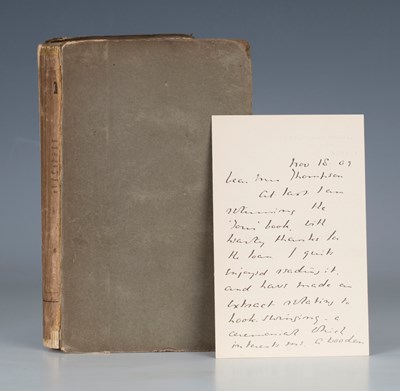 Nov 18. 03
Dear Miss Thompson
At last I am
returning the
book, with
hearty thanks for
the loan I quite
enjoyed reading it
and have made an
extract relating to
hook-swinging. a
ceremonial which
interests me. A wooden